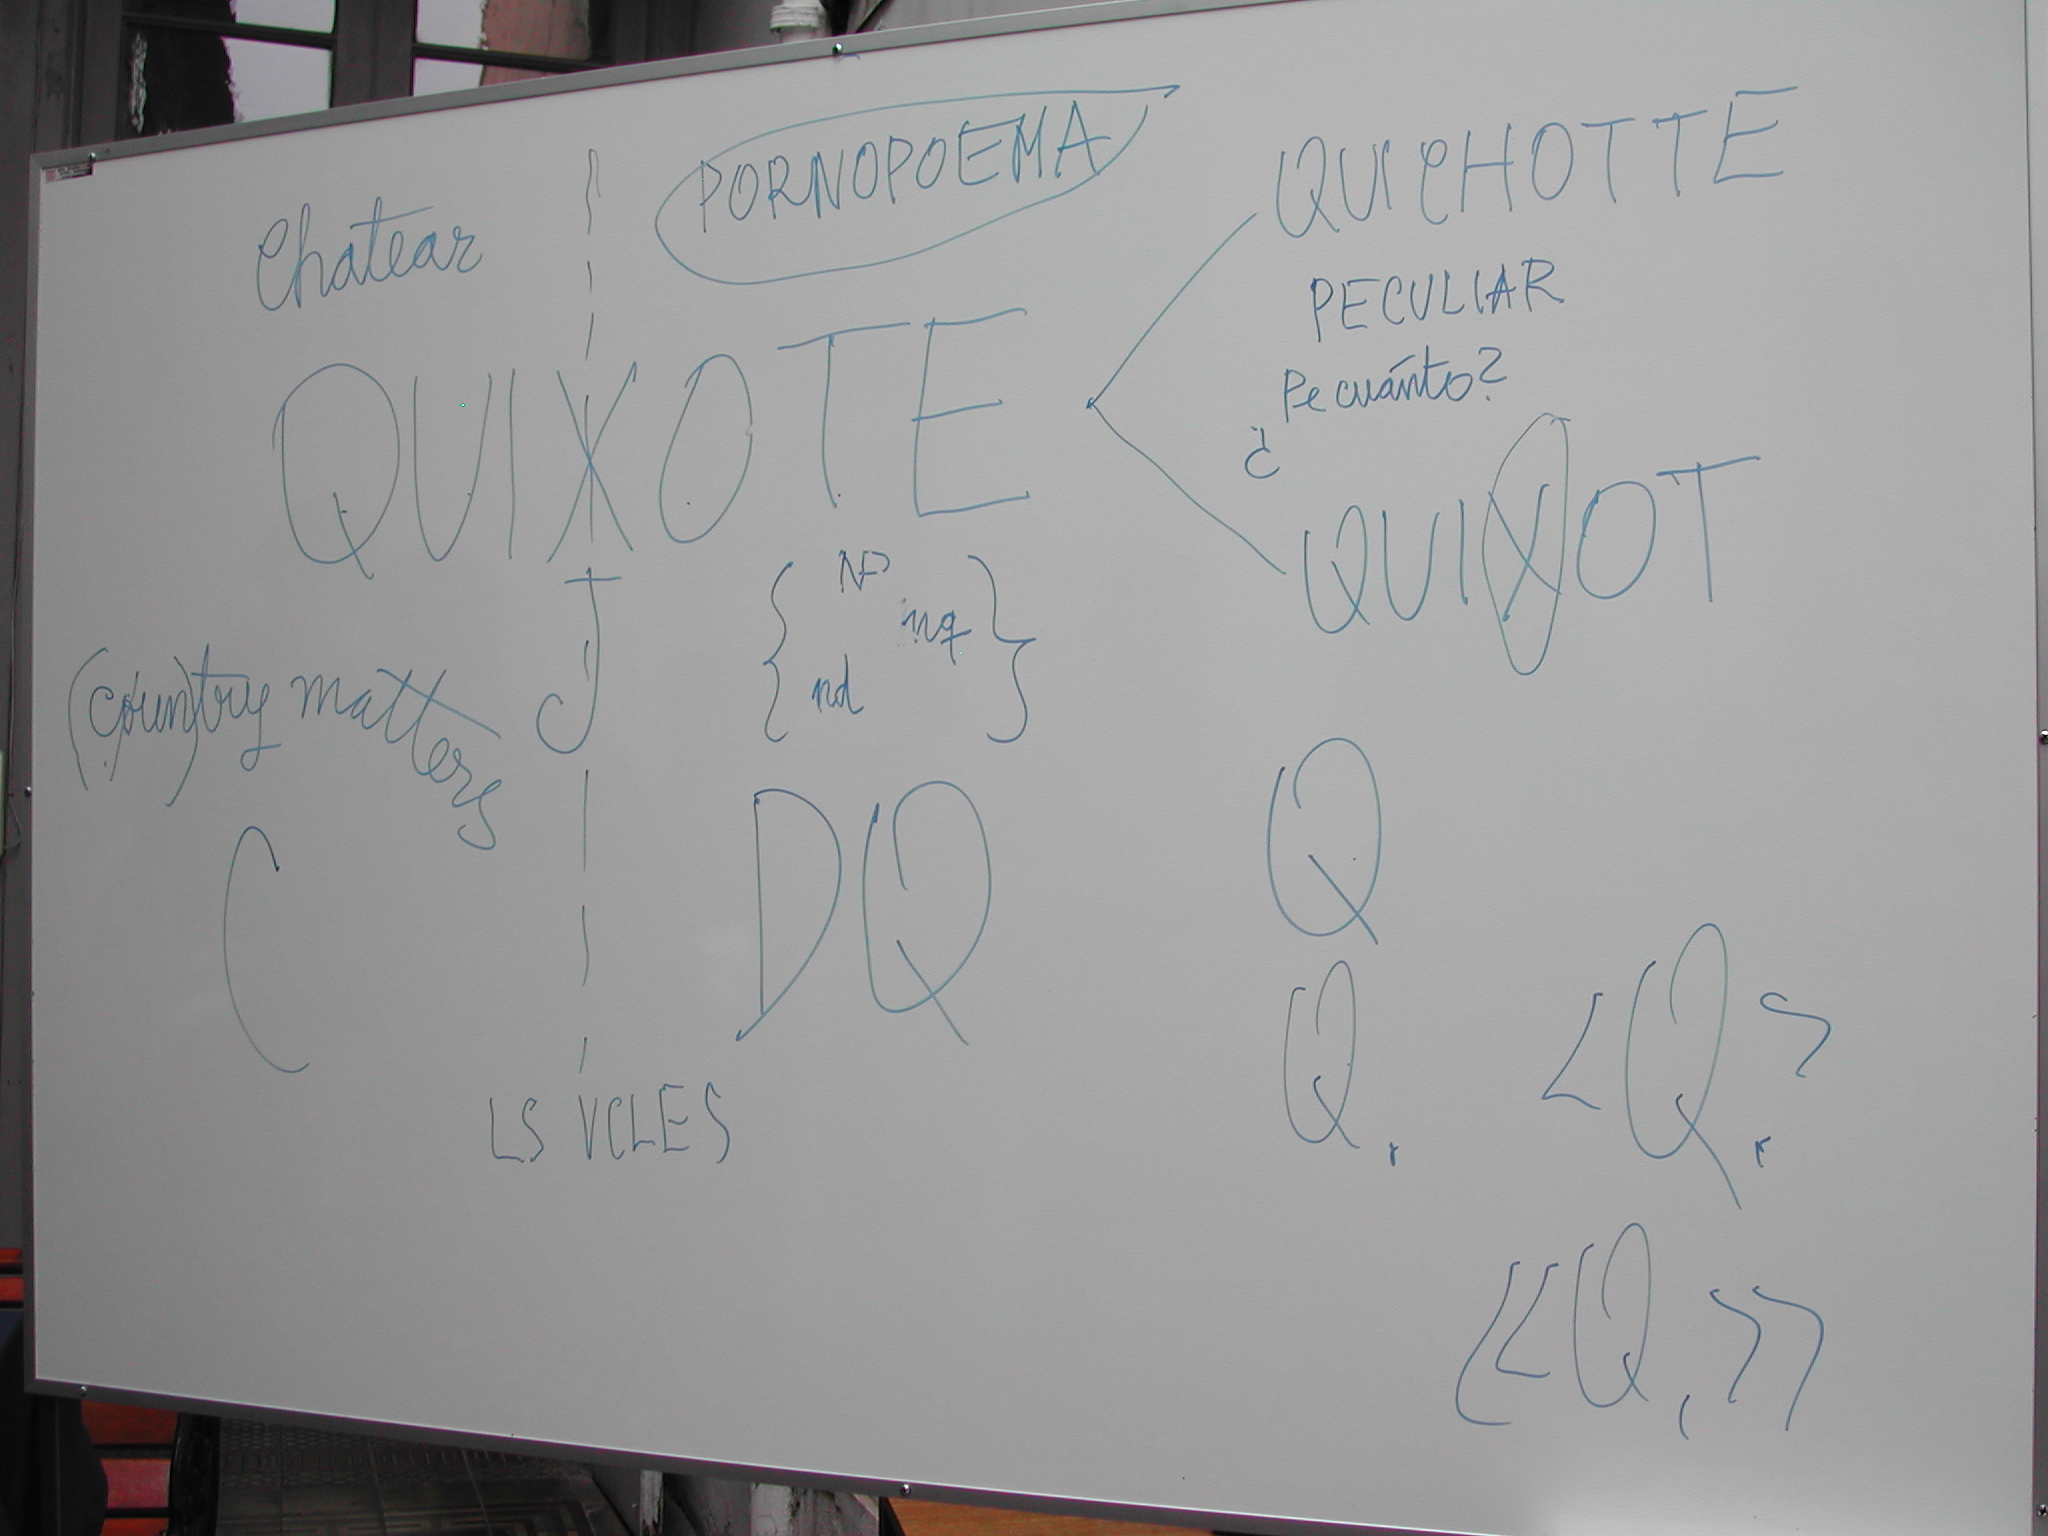 Chatear
PORNOPOEMA
QUICHOTTE
PECULIAR
¿Pe cuánto?
QUIXOTE
QUIXOT
J
NP
nq
nd
(coun)try matters
C
DQ
Q
Q.
<Q.>
<<Q,>>
LS VCLES